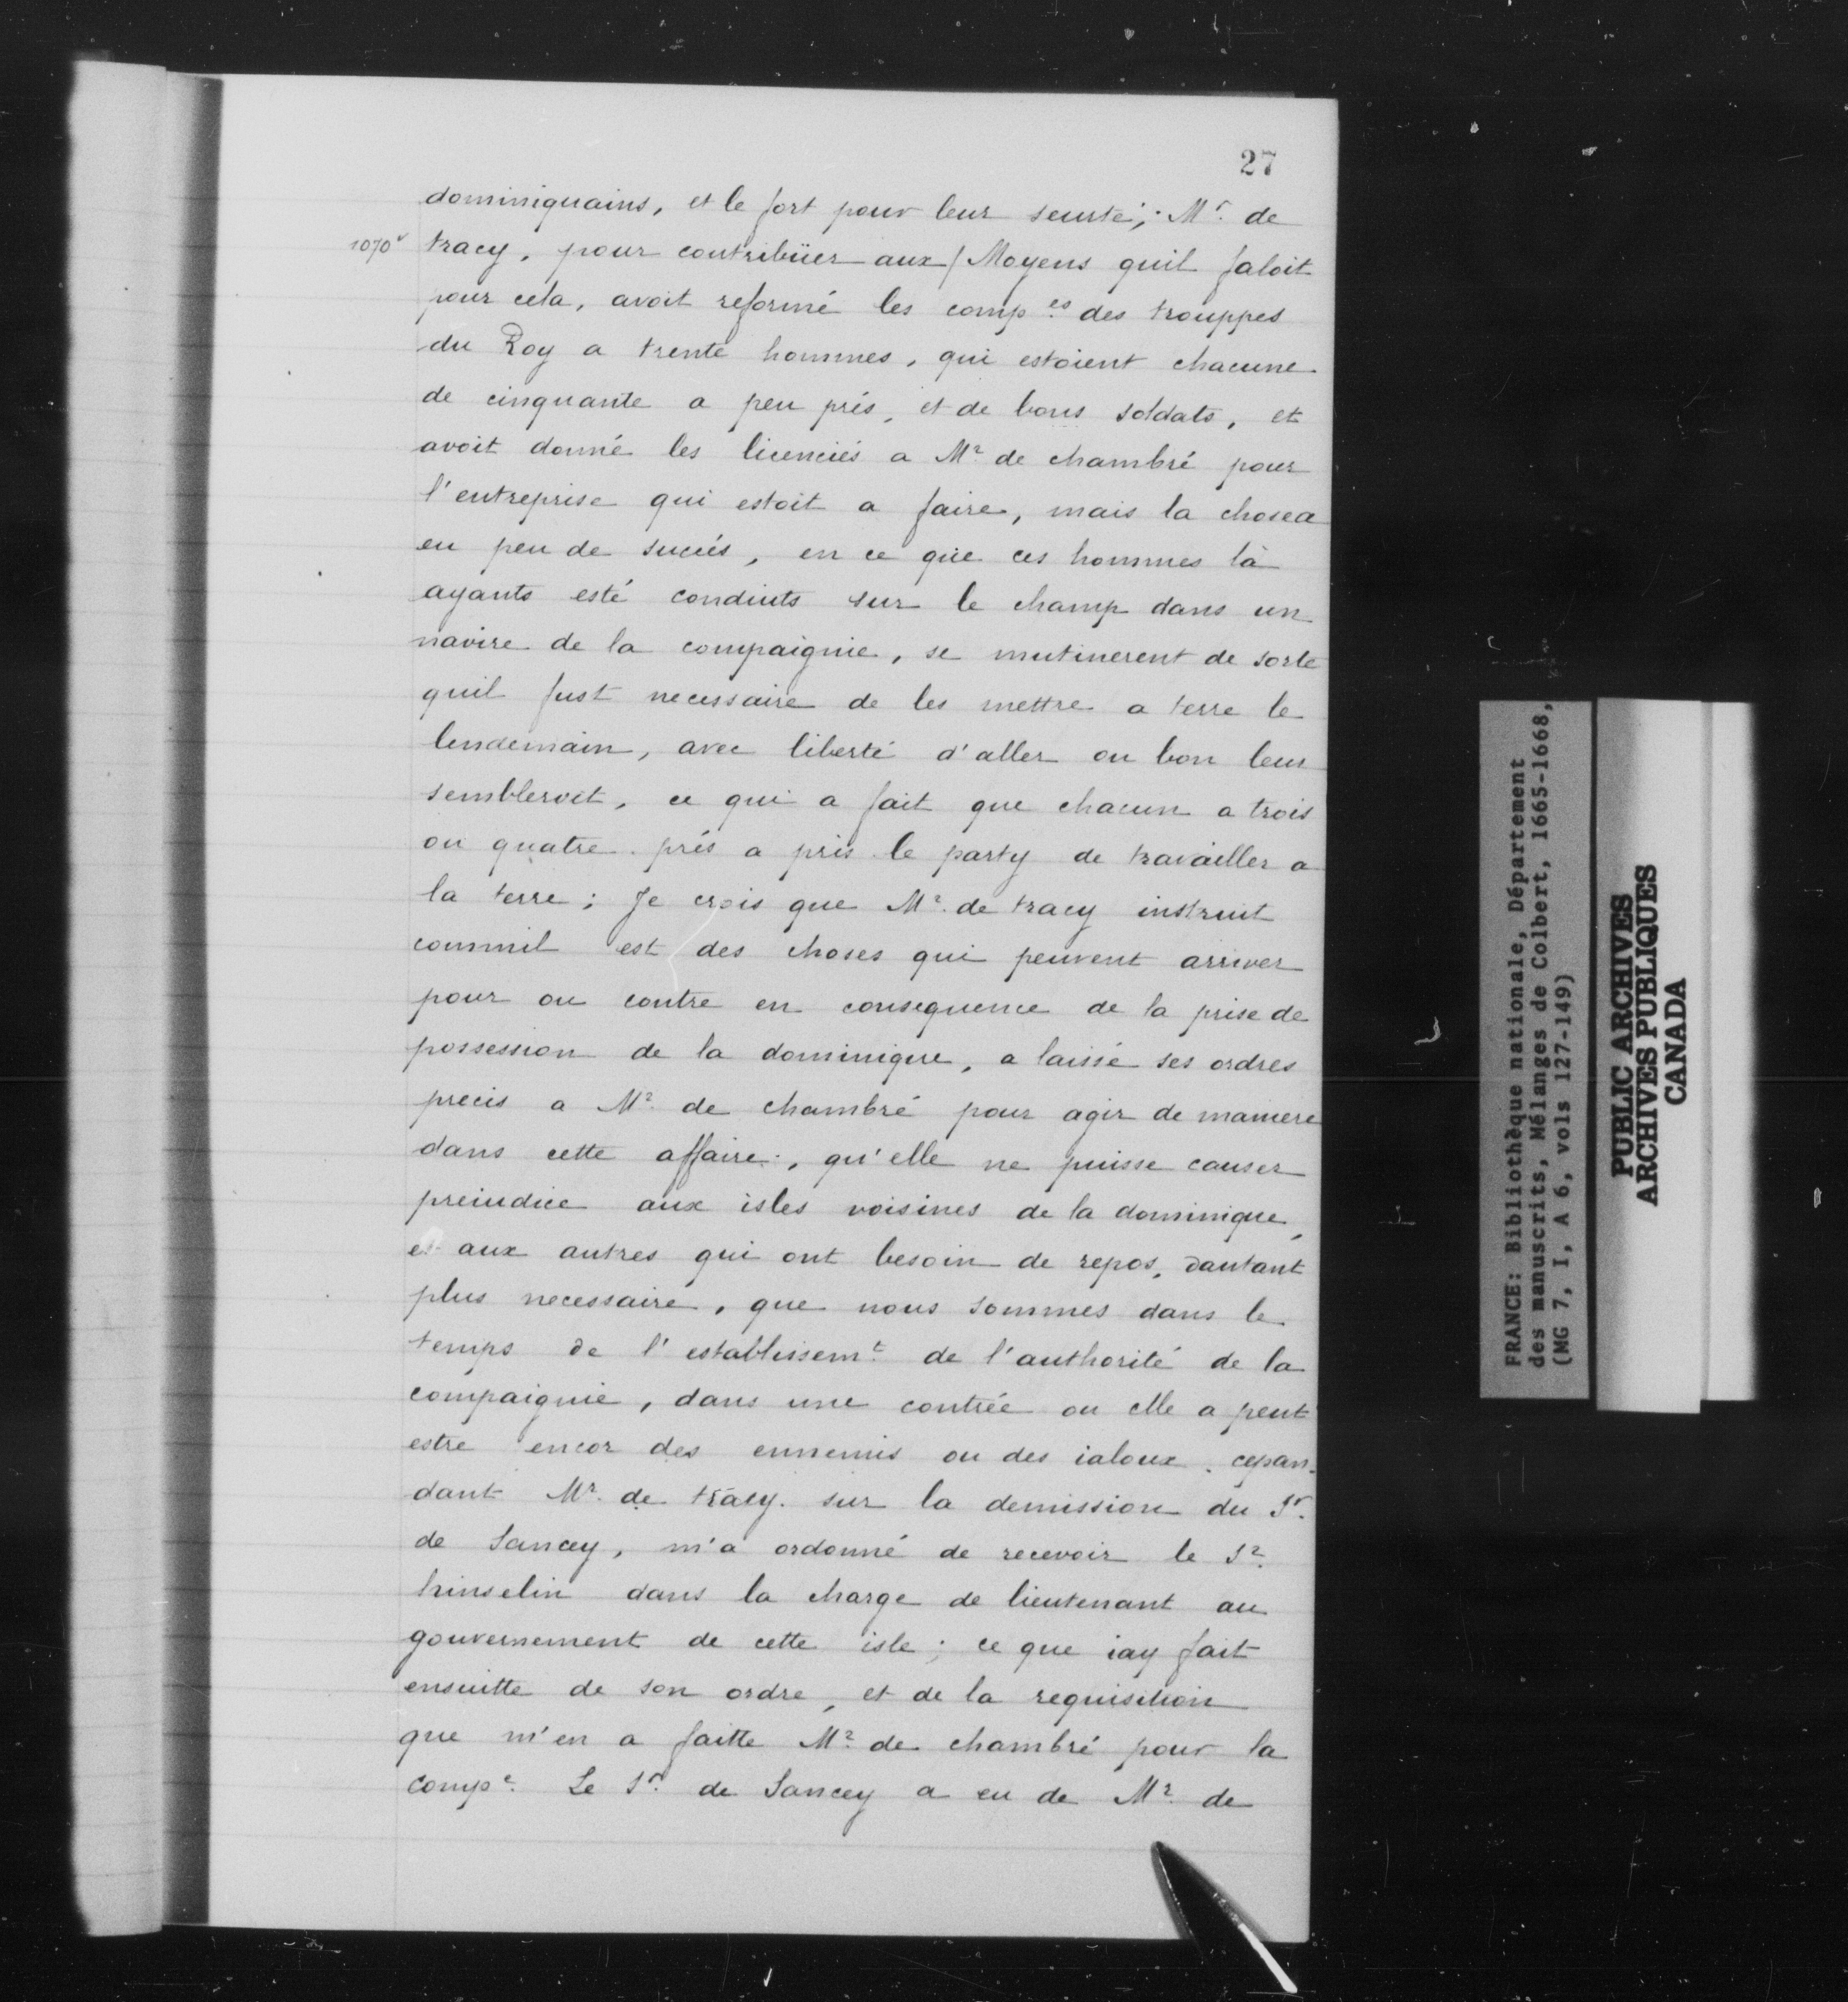 27
dominiquains, et le fort pour leur seurté; Mr. de
1070v
tracy, pour contribüer aux / Moyens quil faloit
pour cela, avoit reformé les comp.es des trouppes
du Roy a trente hommes, qui estoient chacune
de cinquante a peu prés, et de bons soldats, et
avoit donné les licenciés a Mr. de chambré pour
l'entreprise qui estoit a faire, mais la chosea
eu peu de succés, en ce que ces hommes là
ayants esté conduits sur le champ dans un
navire de la compaignie, se mutinerent de sorte
quil fust necessaire de les mettre a terre le
lendemain, avec liberté d'aller ou bon leur
sembleroit, ce qui a fait que chacun a trois
ou quatre prés a pris le party de travailler a
la terre; Je crois que Mr. de tracy instruit
commil est des choses qui peuvent arriver
pour ou contre en consequence de la prise de
possession de la dominique, a laissé ses ordres
precis a Mr. de chambré pour agir de maniere
dans cette affaire, qu'elle ne puisse causer
preiudice aux isles voisines de la dominique,
et aux autres qui ont besoin de repos, dautant
plus necessaire, que nous sommes dans le
temps de l'establissemt. de l'authorité de la
compaignie, dans une contrée ou elle a peut
estre encor des ennemis ou des ialoux. cepan-
dant Mr. de tracy. sur la demission du Sr.
de Sancey, m'a ordonné de recevoir le Sr.
hinselin dans la charge de lieutenant au
gouvernement de cette isle; ce que iay fait
ensuitte de son ordre, et de la requisition
que m'en a faitte Mr. de chambré pour la
compe. Le Sr. de Sancey a eu de Mr. de
FRANCE: Bibliothèque nationale, Département
des manuscrits, Mélanges de Colbert, 1665-1668,
(MG 7, I, A 6, vols 127-149)
PUBLIC ARCHIVES
ARCHIVES PUBLIQUES
CANADA